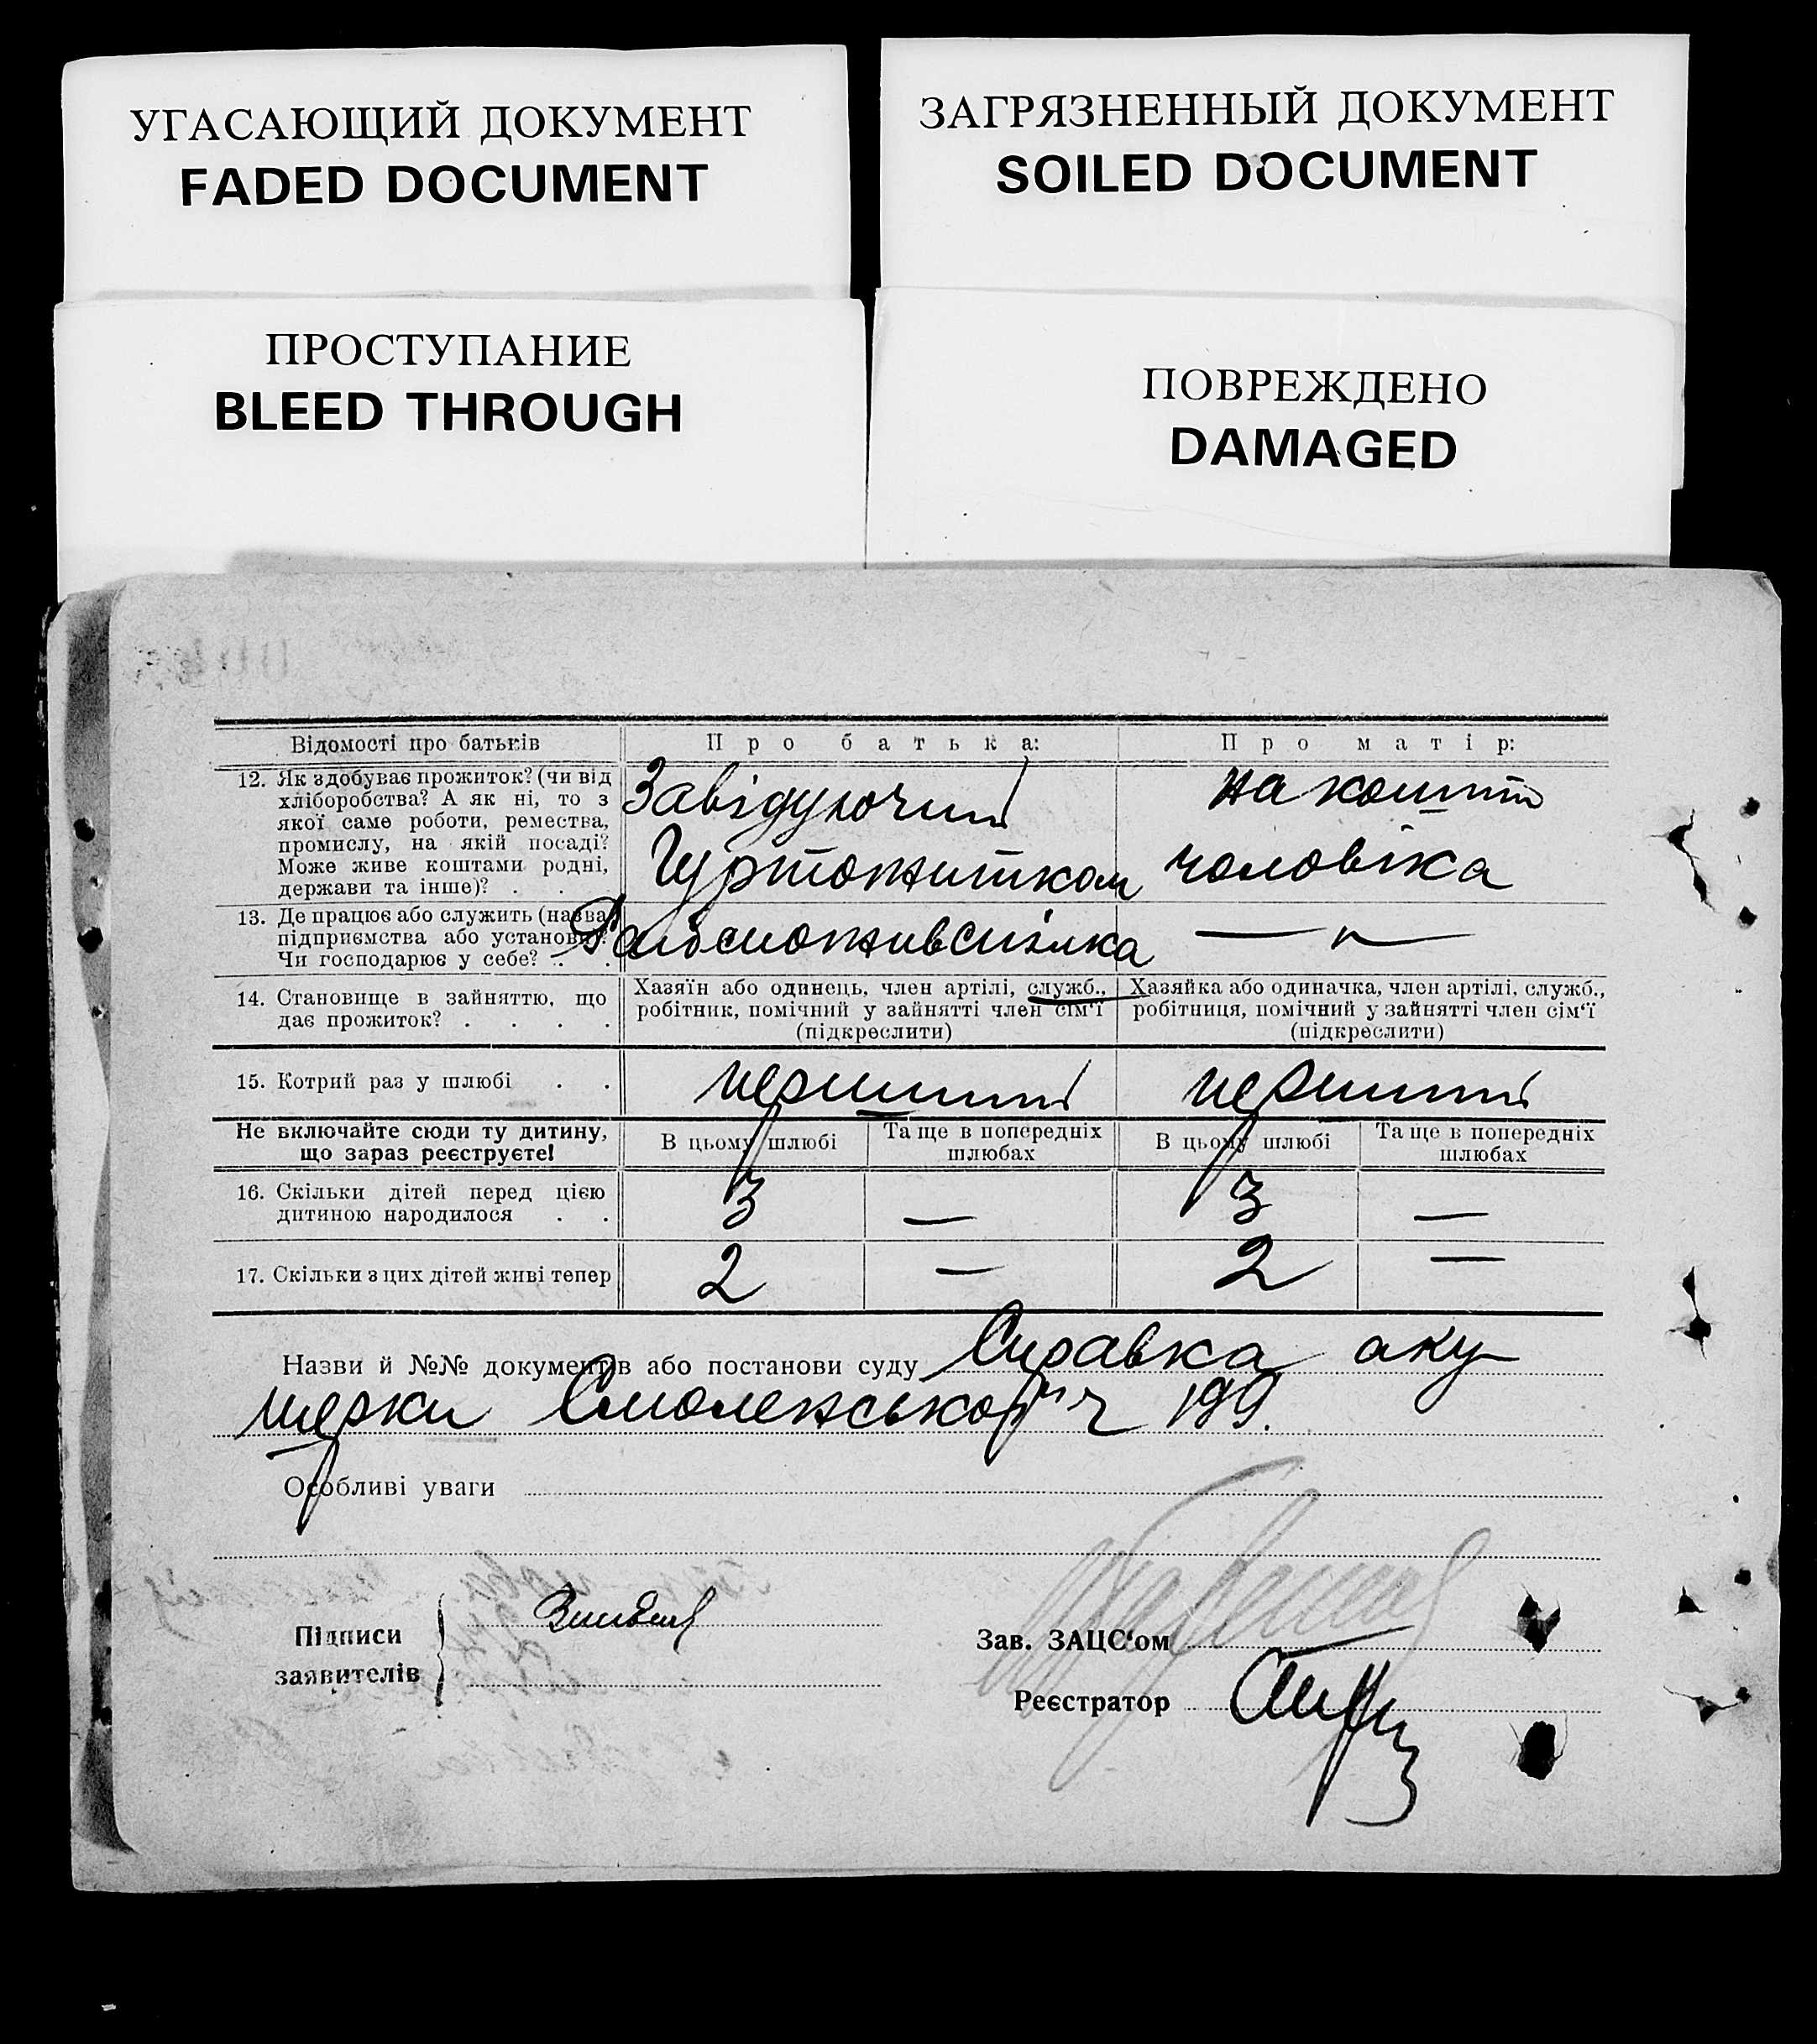 УГАСАЮЩИЙ ДОКУМЕНТ
FADED DOCUMENT
ЗАГРЯЗНЕННЫЙ ДОКУМЕНТ
SOILED DOCUMENT
ПРОСТУПАНИЕ
BLEED THROUGH
ПОВРЕЖДЕНО
DAMAGED
Відомості про батьків
Про батька:
Про матір:
12. Як здобуває прожиток? (чи від
хліборобства? А як ні, то з
якої саме роботи, ремества,
промислу, на якій посаді?
Може живе коштами родні,
держави та інше)? . . .
Завідуючий
Гуртожитком
на кошти
чоловіка
13. Де працює або служить (назва
підприємства або установи?
Чи господарює у себе? . .
Райспоживспілка
— „ —
14. Становище в зайняттю, що
дає прожиток? . . . .
Хазяїн або одинець, член артілі, служб.,
робітник, помічний у зайнятті член сім'ї
(підкреслити)
Хазяйка або одиначка, член артілі, служб.,
робітниця, помічний у зайнятті член сім'ї
(підкреслити)
15. Котрий раз у шлюбі . .
перший
перший
Не включайте сюди ту дитину,
що зараз реєструєте!
В цьому шлюбі
Та ще в попередніх
шлюбах
В цьому шлюбі
Та ще в попередніх
шлюбах
16. Скільки дітей перед цією
дитиною народилося . .
3
—
3
—
17. Скільки з цих дітей живі тепер
2
—
2
—
Назви й №№ документів або постанови суду Справка аку
шерки Смоленської
Особливі уваги
Підписи
заявителів
Зав. ЗАЦС'ом
Реєстратор